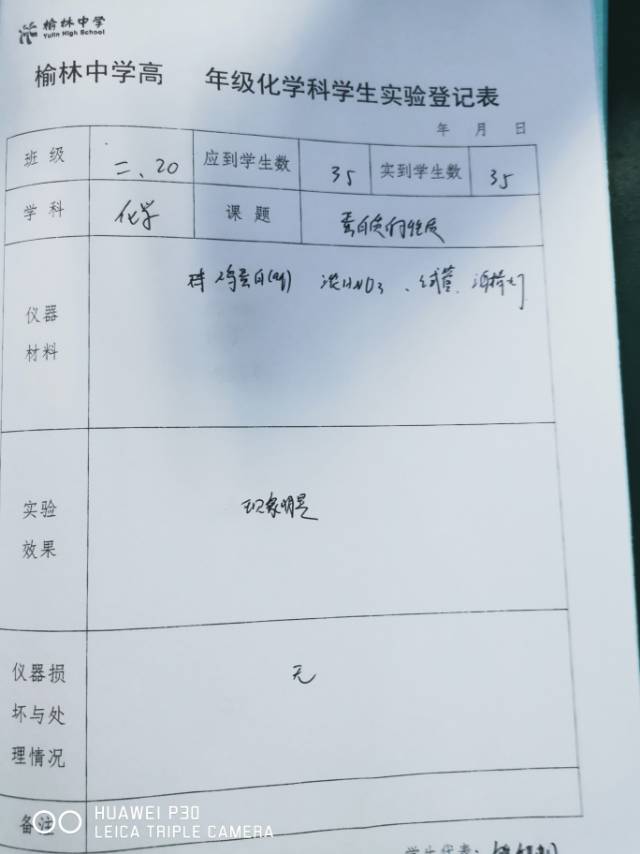 榆林中学
Yulin High School
榆林中学高 年级化学科学生实验登记表
年 月 日
班级 二、20 应到学生数 35 实到学生数 35
学科 化学 课题 蛋白质的性质
仪器
材料
鸡蛋白(aq) 浓HNO3、试管、酒精灯
实验
效果
现象明显
仪器损
坏与处
理情况
无
备注
学生代表:
HUAWEI P30
LEICA TRIPLE CAMERA